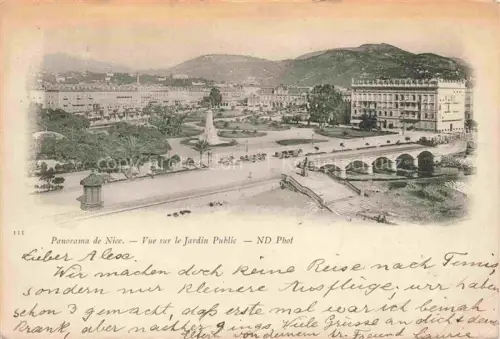 111
Panorama de Nice. — Vue sur le Jardin Public — ND Phot
Lieber Alex.
Wir machen doch keine Reise nach Tunis
sondern nur kleinere Ausflüge. wir haben
schon 3 gemacht, daß erste mal war ich beinah
krank, aber nachher gings. Viele Grüsse an dich & deine
von deinem tr. Freund